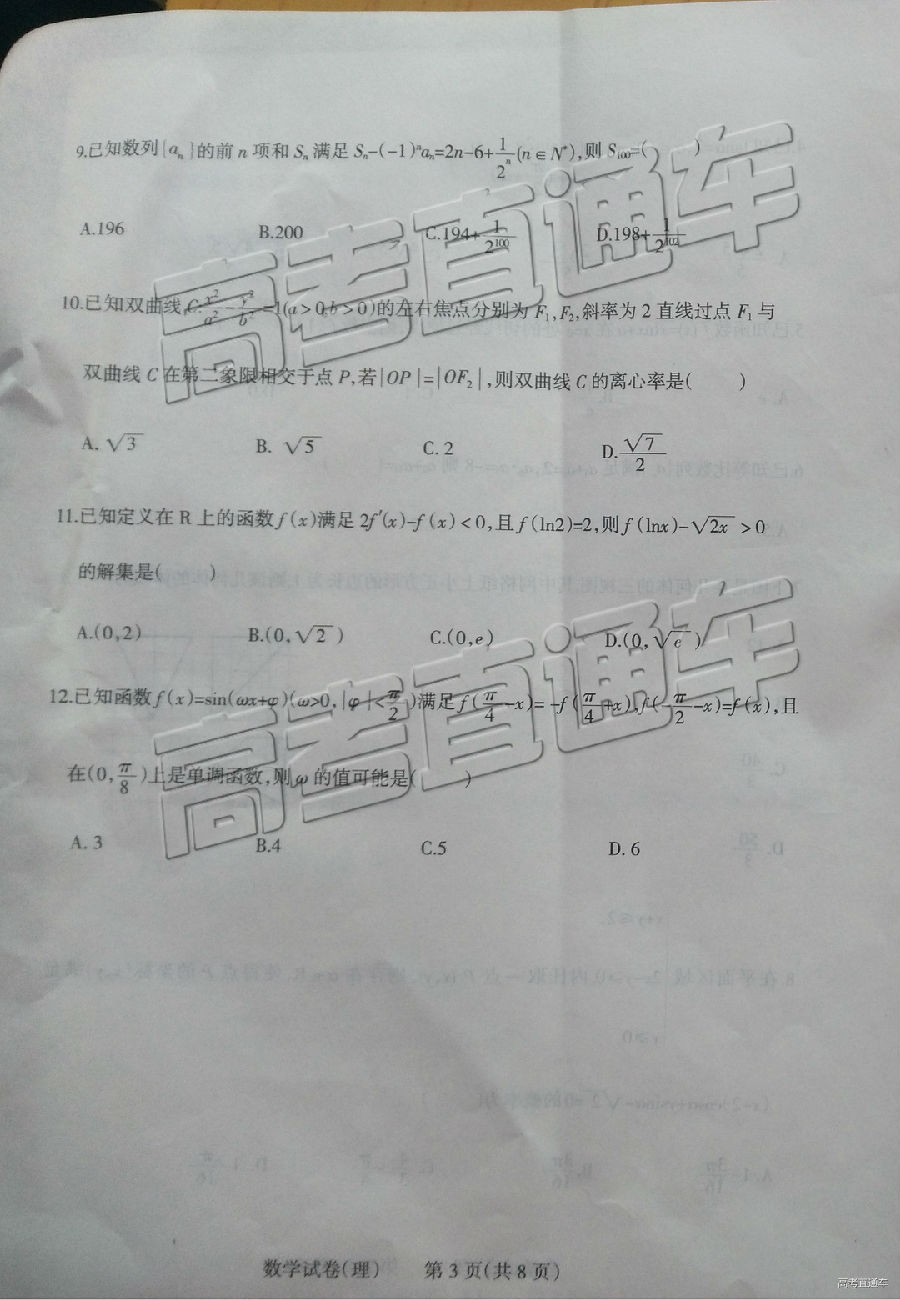 9.已知数列{aₙ}的前 n 项和 Sₙ 满足 Sₙ-(-1)ⁿaₙ=2n-6+1/2ⁿ(n∈N*),则 S₁₀₀=( )
A.196 B.200 C.194+1/2¹⁰⁰ D.198+1/2¹⁰²
10.已知双曲线 C:x²/a²-y²/b²=1(a>0,b>0)的左右焦点分别为 F₁,F₂,斜率为 2 直线过点 F₁ 与
双曲线 C 在第二象限相交于点 P,若|OP|=|OF₂|,则双曲线 C 的离心率是( )
A. √3 B. √5 C. 2 D. √7/2
11.已知定义在 R 上的函数 f(x)满足 2f′(x)-f(x)<0,且 f(ln2)=2,则 f(lnx)-√2x >0
的解集是( )
A.(0,2) B.(0,√2) C.(0,e) D.(0,√e)
12.已知函数 f(x)=sin(ωx+φ)(ω>0,|φ|<π/2)满足 f(π/4-x)=-f(π/4+x),f(-π/2-x)=f(x),且
在(0,π/8)上是单调函数,则 ω 的值可能是( )
A. 3 B.4 C.5 D. 6
数学试卷(理) 第 3 页(共 8 页)
高考直通车
高考直通车
高考直通车